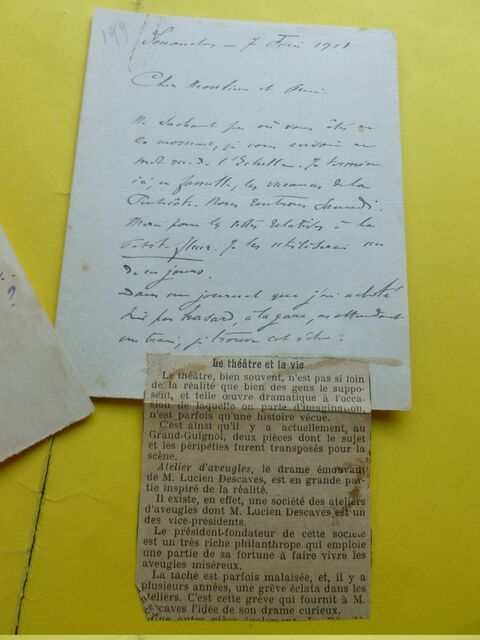 199
7 Juin 1911
Cher Monsieur et Ami.
Ne sachant pas où vous êtes en
ce moment, je vous envoie un
mot rue de l'Echelle. Je termine
ici, en famille, les vacances de la
Pentecôte. Nous rentrons Samedi.
Merci pour les notes relatives à la
Petite fleur. Je les utiliserai un
de ces jours.
Dans un journal que j'ai acheté
hier par hasard, à la gare, en attendant
un train, je trouve cet écho :
?
Le théâtre et la vie
Le théâtre, bien souvent, n'est pas si loin
de la réalité que bien des gens le suppo-
sent, et telle œuvre dramatique à l'occa-
sion de laquelle on parle d'imagination,
n'est parfois qu'une histoire vécue.
C'est ainsi qu'il y a actuellement, au
Grand-Guignol, deux pièces dont le sujet
et les péripéties furent transposés pour la
scène.
Atelier d'aveugles, le drame émouvant
de M. Lucien Descaves, est en grande par-
tie inspiré de la réalité.
Il existe, en effet, une société des ateliers
d'aveugles dont M. Lucien Descaves est un
des vice-présidents.
Le président-fondateur de cette société
est un très riche philanthrope qui emploie
une partie de sa fortune à faire vivre les
aveugles miséreux.
La tâche est parfois malaisée, et, il y a
plusieurs années, une grève éclata dans les
teliers. C'est cette grève qui fournit à M.
escaves l'idée de son drame curieux.